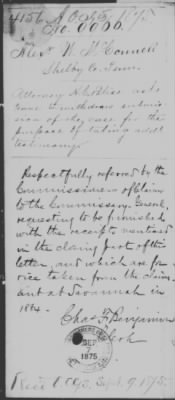 4156
No. 6666.
Alexr W. McConnell
Shelby Co. Tenn.
Attorney A. asks
leave to withdraw submis-
sion of the case for the
purpose of taking addl
testimony.
Respectfully referred by the
Commissioners of Claims
to the Commissary General,
requesting to be furnished
with the receipt mentioned
in the claiming part of this
letter, and which are for
rice taken from the claim-
ant at Savannah in
1864.
Chas. F. Benjamin
Clerk
SEP
7
1875
Recd Sept. 9, 1875